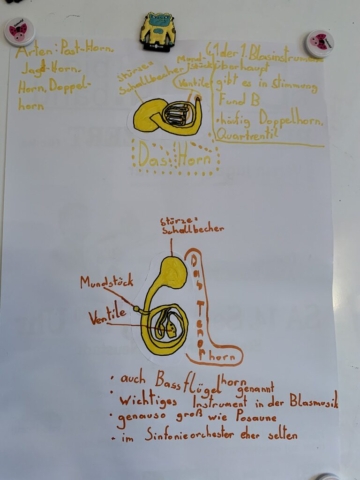 Arten: Post-Horn.
Jagd-Horn.
Horn, Doppel-
horn
Stürze=
Schallbecher
Mund-
Ventile
1 der 1 Blasinstrumen
überhaupt
gibt es in stimmung
F und B
• häufig Doppelhorn.
Quartventil
Dass Horn
Stürze=
Schallbecher
Mundstück
Ventile
Das Tenor
horn
• auch Bassflügelhorn genannt
• wichtiges Instrument in der Blasmusik
• genauso groß wie Posaune
• im Sinfonieorchester eher selten